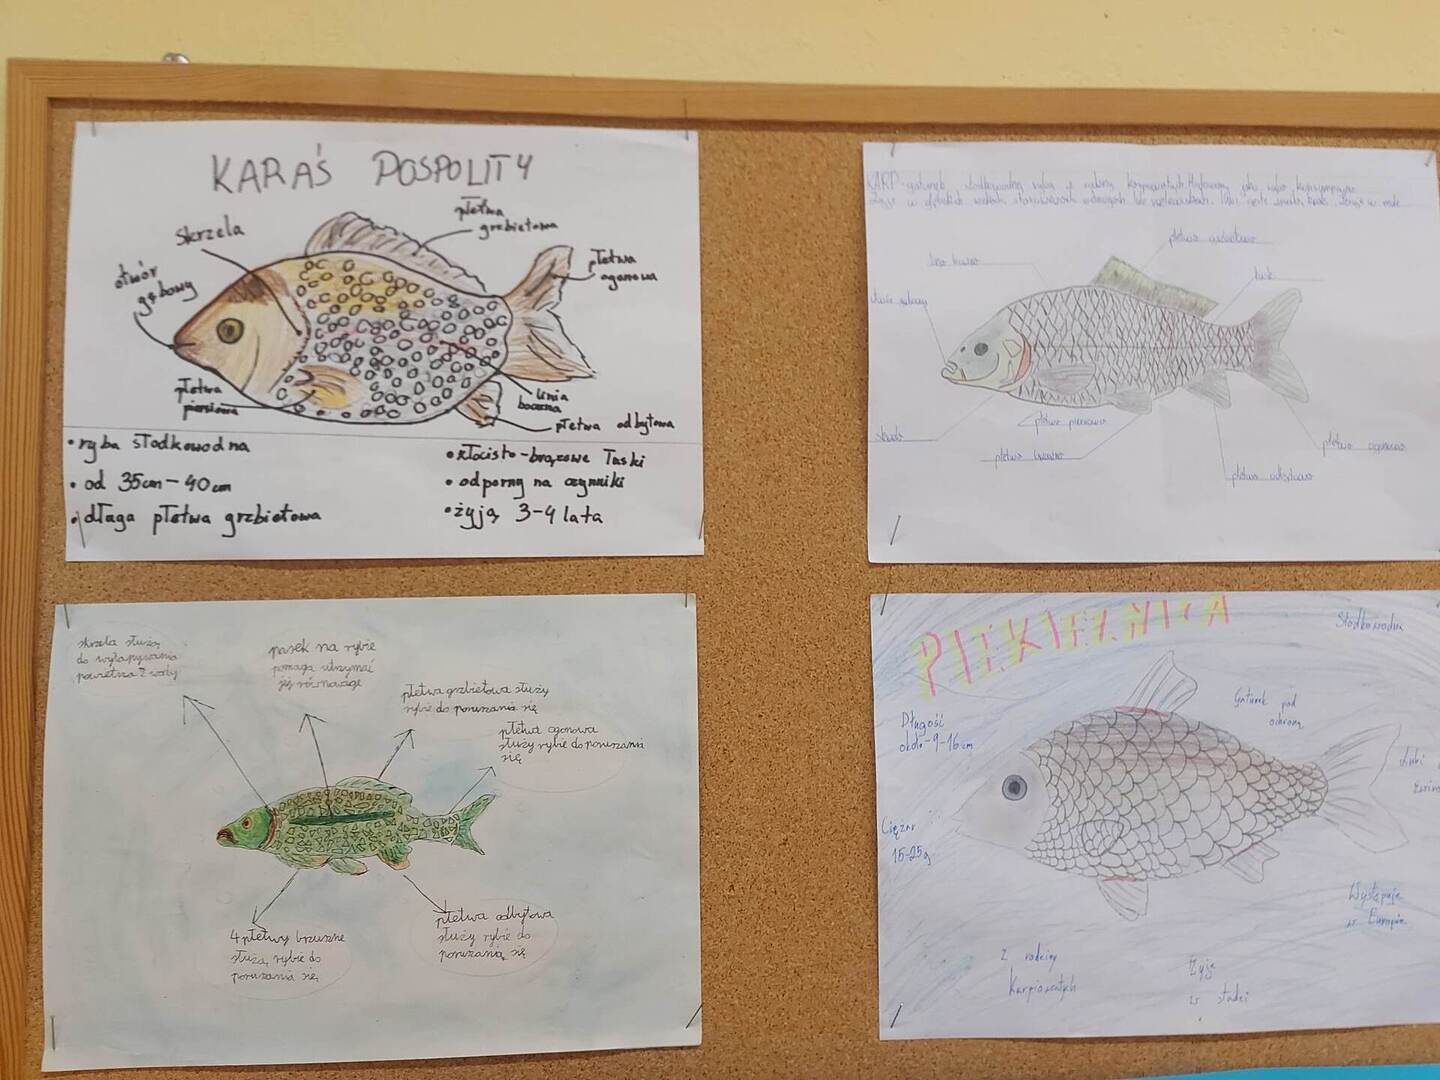 KARAŚ POSPOLITY
skrzela
płetwa
grzbietowa
otwór
gębowy
płetwa
ogonowa
płetwa
piersiowa
linia
boczna
płetwa odbytowa
• ryba słodkowodna
• od 35cm - 40cm
• długa płetwa grzbietowa
• złocisto-brązowe łuski
• odporny na czynniki
• żyją 3-4 lata
KARP - gatunek słodkowodnej ryby z rodziny karpiowatych. Hodowany jako ryba konsumpcyjna
Żyje w
płetwa
płetwa piersiowa
płetwa brzuszna
płetwa ogonowa
płetwa odbytowa
skrzela służą
do wyłapywania
powietrza z wody
pasek na rybie
pomaga utrzymać
jej równowagę
płetwa grzbietowa służy
rybie do poruszania się
płetwa ogonowa
służy rybie do poruszania
się
4 płetwy brzuszne
służą rybie do
poruszania się
płetwa odbytowa
służy rybie do
poruszania się
PIEKIELNICA
Słodkowodna
Długość
około 9-16 cm
Gatunek pod
ochroną
Lubi
Ciężar
15-25g
Występuje
w Europie
Z rodziny
Karpiowatych
Żyje
w stadzi